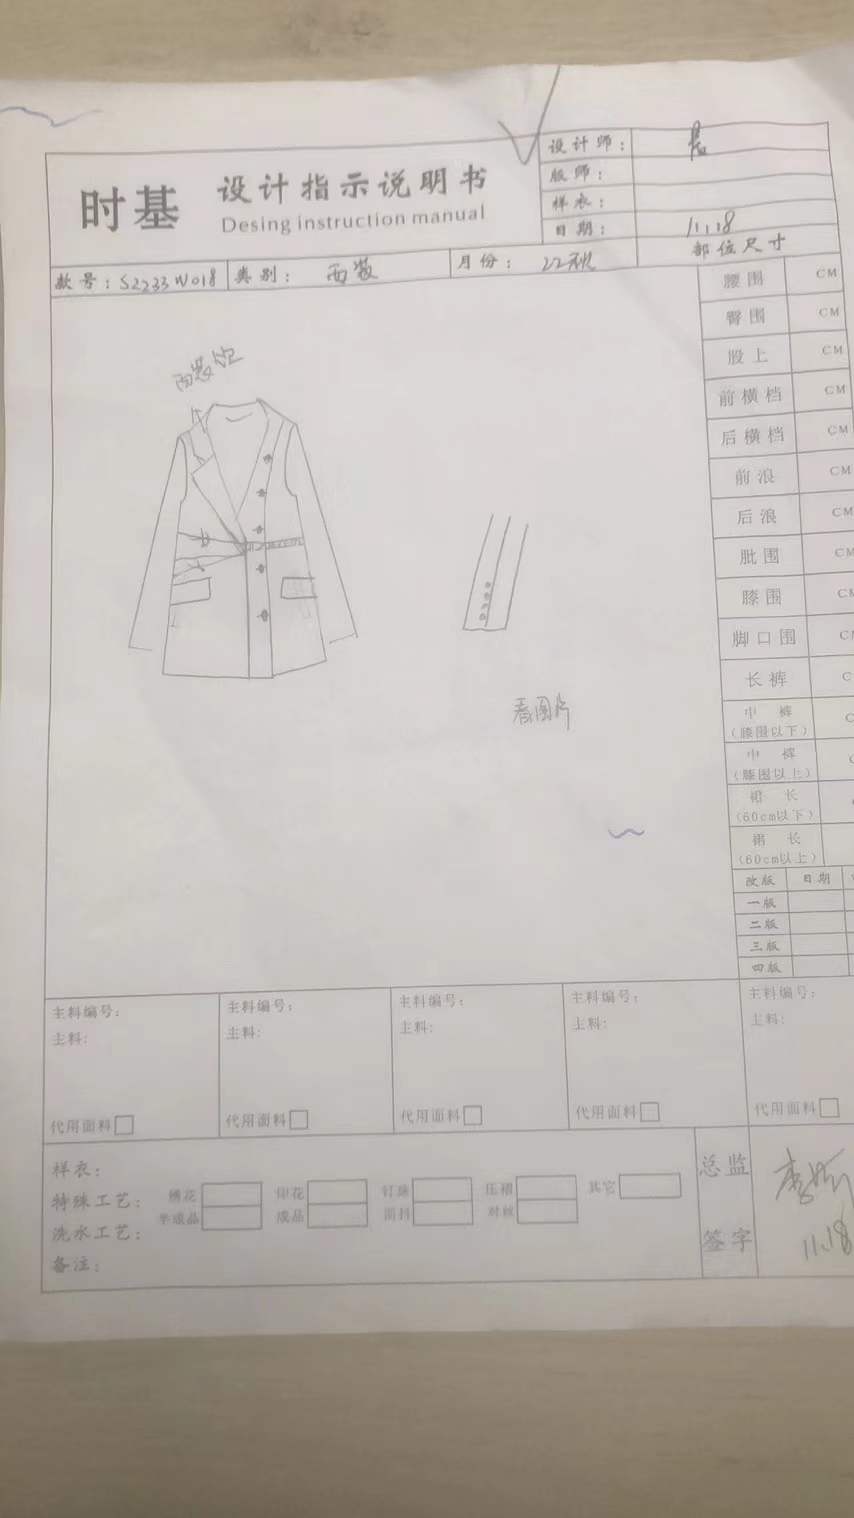 时基
设计指示说明书
Desing instruction manual
设计师：
版师：
样衣：
日期： 11.18
款号：S2233W018 类别： 西装 月份： 22秋
部位尺寸
腰围 CM
臀围 CM
股上 CM
前横档 CM
后横档 CM
前浪 CM
后浪 CM
肶围 CM
膝围
脚口围
长裤
中裤
（膝围以下）
中裤
（膝围以上）
裙长
（60cm以下）
裙长
（60cm以上）
改版 日期
一版
二版
三版
四版
看图片
主料编号： 主料编号： 主料编号： 主料编号： 主料编号：
主料： 主料： 主料： 主料： 主料：
代用面料 代用面料 代用面料 代用面料 代用面料
样衣：
特殊工艺： 绣花 印花 钉珠 压褶 其它
半成品 成品 面料 对丝
洗水工艺：
备注：
总监
签字
11.18